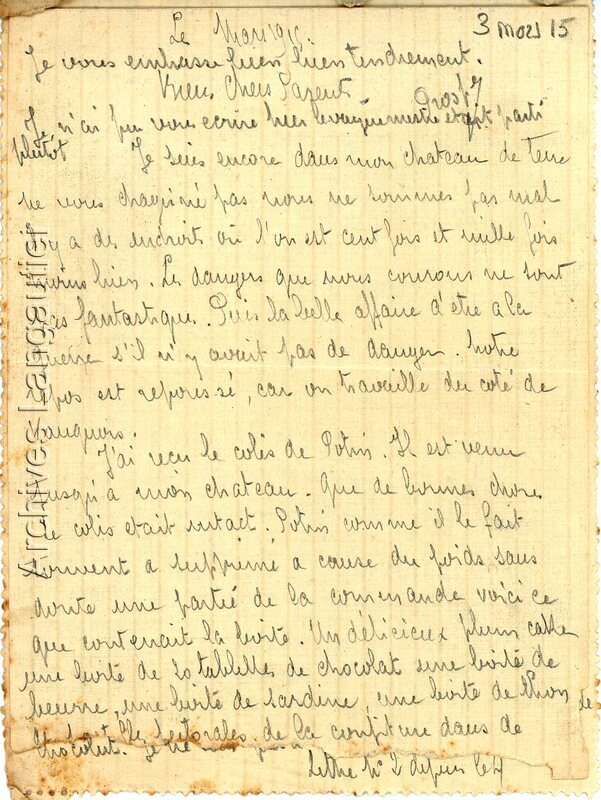 3 mars 15
Le Mars 1915.
Je vous embrasse bien bien tendrement.
Bien Chers Parents
Je n'ai pu vous ecrire hier le vaguemestre etait parti
plutot Je suis encore dans mon chateau de terre
ne vous chagriné pas nous ne sommes pas mal
il y a des endroits où l'on est cent fois et mille fois
moins bien. Les dangers que nous courons ne sont
pas fantastique. Puis la belle affaire d'etre a la
guerre s'il n'y avait pas de danger. Notre
repos est repoussé, car on travaille du coté de
Vauquois.
J'ai recu le colis de Potin. Il est venu
jusqu'a mon chateau. Que de bonnes chose
Le colis etait intact. Potin comme il le fait
souvent a supprimé a cause du poids sans
doute une partie de la commande voici ce
que contenait la boite. Un délicieux plum cake
une boite de 20 tablettes de chocolat une boité de
beurre, une boite de sardine, une boite de thon
pectorales, de la confiture dans de
chocolat. Je ne
Lettre N° 2 depuis le 4
Archives Lanogulier